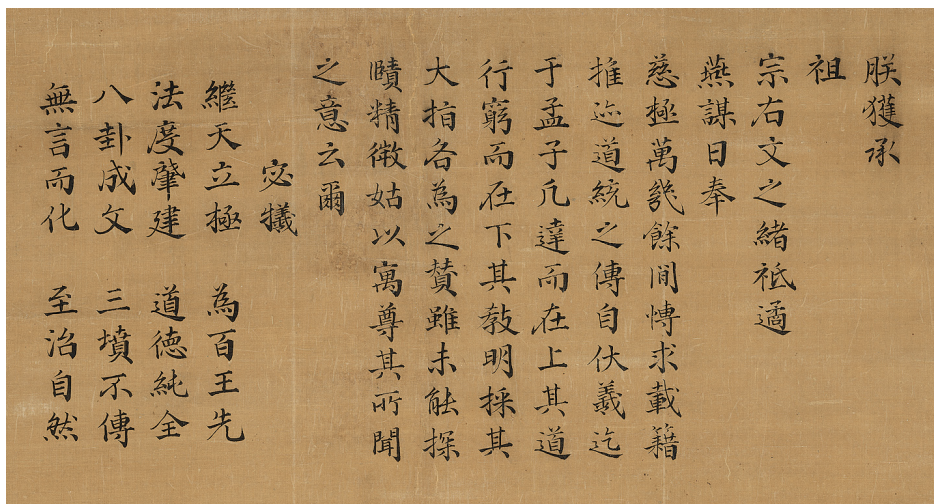 朕獲承
祖
宗右文之緒祗遹
燕謀日奉
慈極萬㡬餘閒愽求載籍
推迹道統之傳自伏羲迄
于孟子凡達而在上其道
行窮而在下其敎明採其
大指各為之贊雖未能探
賾精微姑以寓尊其所聞
之意云爾
宓犧
繼天立極 為百王先
法度肇建 道德純全
八卦成文 三墳不傳
無言而化 至治自然